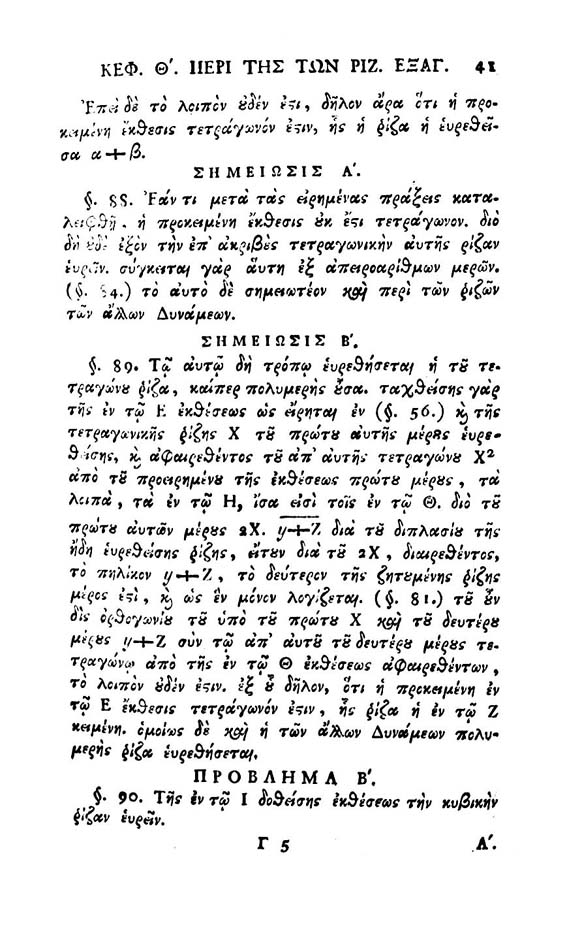 ΚΕΦ. Θ´. ΠΕΡΙ ΤΗΣ ΤΩΝ ΡΙΖ. ΕΞΑΓ. 41
Ἐπεὶ δὲ τὸ λοιπὸν ȣδέν ἐϛι, δῆλον ἄρα ὅτι ἡ προ-
κειμένη ἔκθεσις τετράγωνόν ἐϛιν, ἧς ἡ ῥίζα ἡ ἑυρεθεῖ-
σα α+β.
ΣΗΜΕΙΩΣΙΣ Α´.
§. 88. Ἐάν τι μετὰ τὰς εἰρημένας πράξεις κατα-
λειφθῇ, ἡ προκειμένη ἔκθεσις ȣκ ἔϛι τετράγωνον. διὸ
δὴ ȣδὲ ἐξὸν τὴν ἐπ' ἀκριβὲς τετραγωνικὴν ἀυτῆς ῥίζαν
ἑυρεῖν. σύγκειται γὰρ ἄυτη ἐξ ἀπειροαρίθμων μερῶν.
(§. 84.) τὸ ἀυτὸ δὲ σημειωτέον καὶ περὶ τῶν ῥιζῶν
τῶν ἄλλων Δυνάμεων.
ΣΗΜΕΙΩΣΙΣ Β´.
§. 89. Τῷ ἀυτῷ δὴ τρόπῳ ἑυρεθήσεται ἡ τȣ͂ τε-
τραγώνȣ ῥίζα, καίπερ πολυμερὴς ȣ͂σα. ταχθείσης γὰρ
τῆς ἐν τῷ Ε ἐκθέσεως ὡς εἴρηται ἐν (§. 56.) ϗ τῆς
τετραγωνικῆς ῥίζης Χ τȣ͂ πρώτȣ ἀυτῆς μέρȣς ἑυρε-
θείσης, ϗ ἀφαιρεθέντος τȣ͂ ἀπ' ἀυτῆς τετραγώνȣ Χ²
ἀπὸ τȣ͂ προειρημένȣ τῆς ἐκθέσεως πρώτȣ μέρȣς, τὰ
λοιπὰ, τὰ ἐν τῷ Η, ἴσα εἰσὶ τοῖς ἐν τῷ Θ. διὸ τȣ͂
πρώτȣ ἀυτῶν μέρȣς 2Χ. y+Z διὰ τȣ͂ διπλασίȣ τῆς
ἤδη ἑυρεθείσης ῥίζης, εἴτȣν διὰ τȣ͂ 2Χ, διαιρεθέντος,
τὸ πηλίκον y+Z, τὸ δέυτερον τῆς ζητȣμένης ῥίζης
μέρος ἐϛὶ, ϗ ὡς ἓν μόνον λογίζεται. (§. 81.) τȣ͂ ȣ̓͂ν
δὶς ὀρθογωνίȣ τȣ͂ ὑπὸ τȣ͂ πρώτȣ Χ καὶ τȣ͂ δευτέρȣ
μέρȣς y+Z σὺν τῷ ἀπ' ἀυτȣ͂ τȣ͂ δευτέρȣ μέρȣς τε-
τραγώνῳ ἀπὸ τῆς ἐν τῷ Θ ἐκθέσεως ἀφαιρεθέντων,
τὸ λοιπὸν ȣδέν ἐϛιν. ἐξ ȣ̔͂ δῆλον, ὅτι ἡ προκειμένη ἐν
τῷ Ε ἔκθεσις τετράγωνόν ἐϛιν, ἧς ῥίζα ἡ ἐν τῷ Ζ
κειμένη. ὁμοίως δὲ καὶ ἡ τῶν ἄλλων Δυνάμεων πολυ-
μερὴς ῥίζα ἑυρεθήσεται.
ΠΡΟΒΛΗΜΑ Β´.
§. 90. Τῆς ἐν τῷ Ι δοθείσης ἐκθέσεως τὴν κυβικὴν
ῥίζαν ἑυρεῖν.
Γ 5 Λ´.